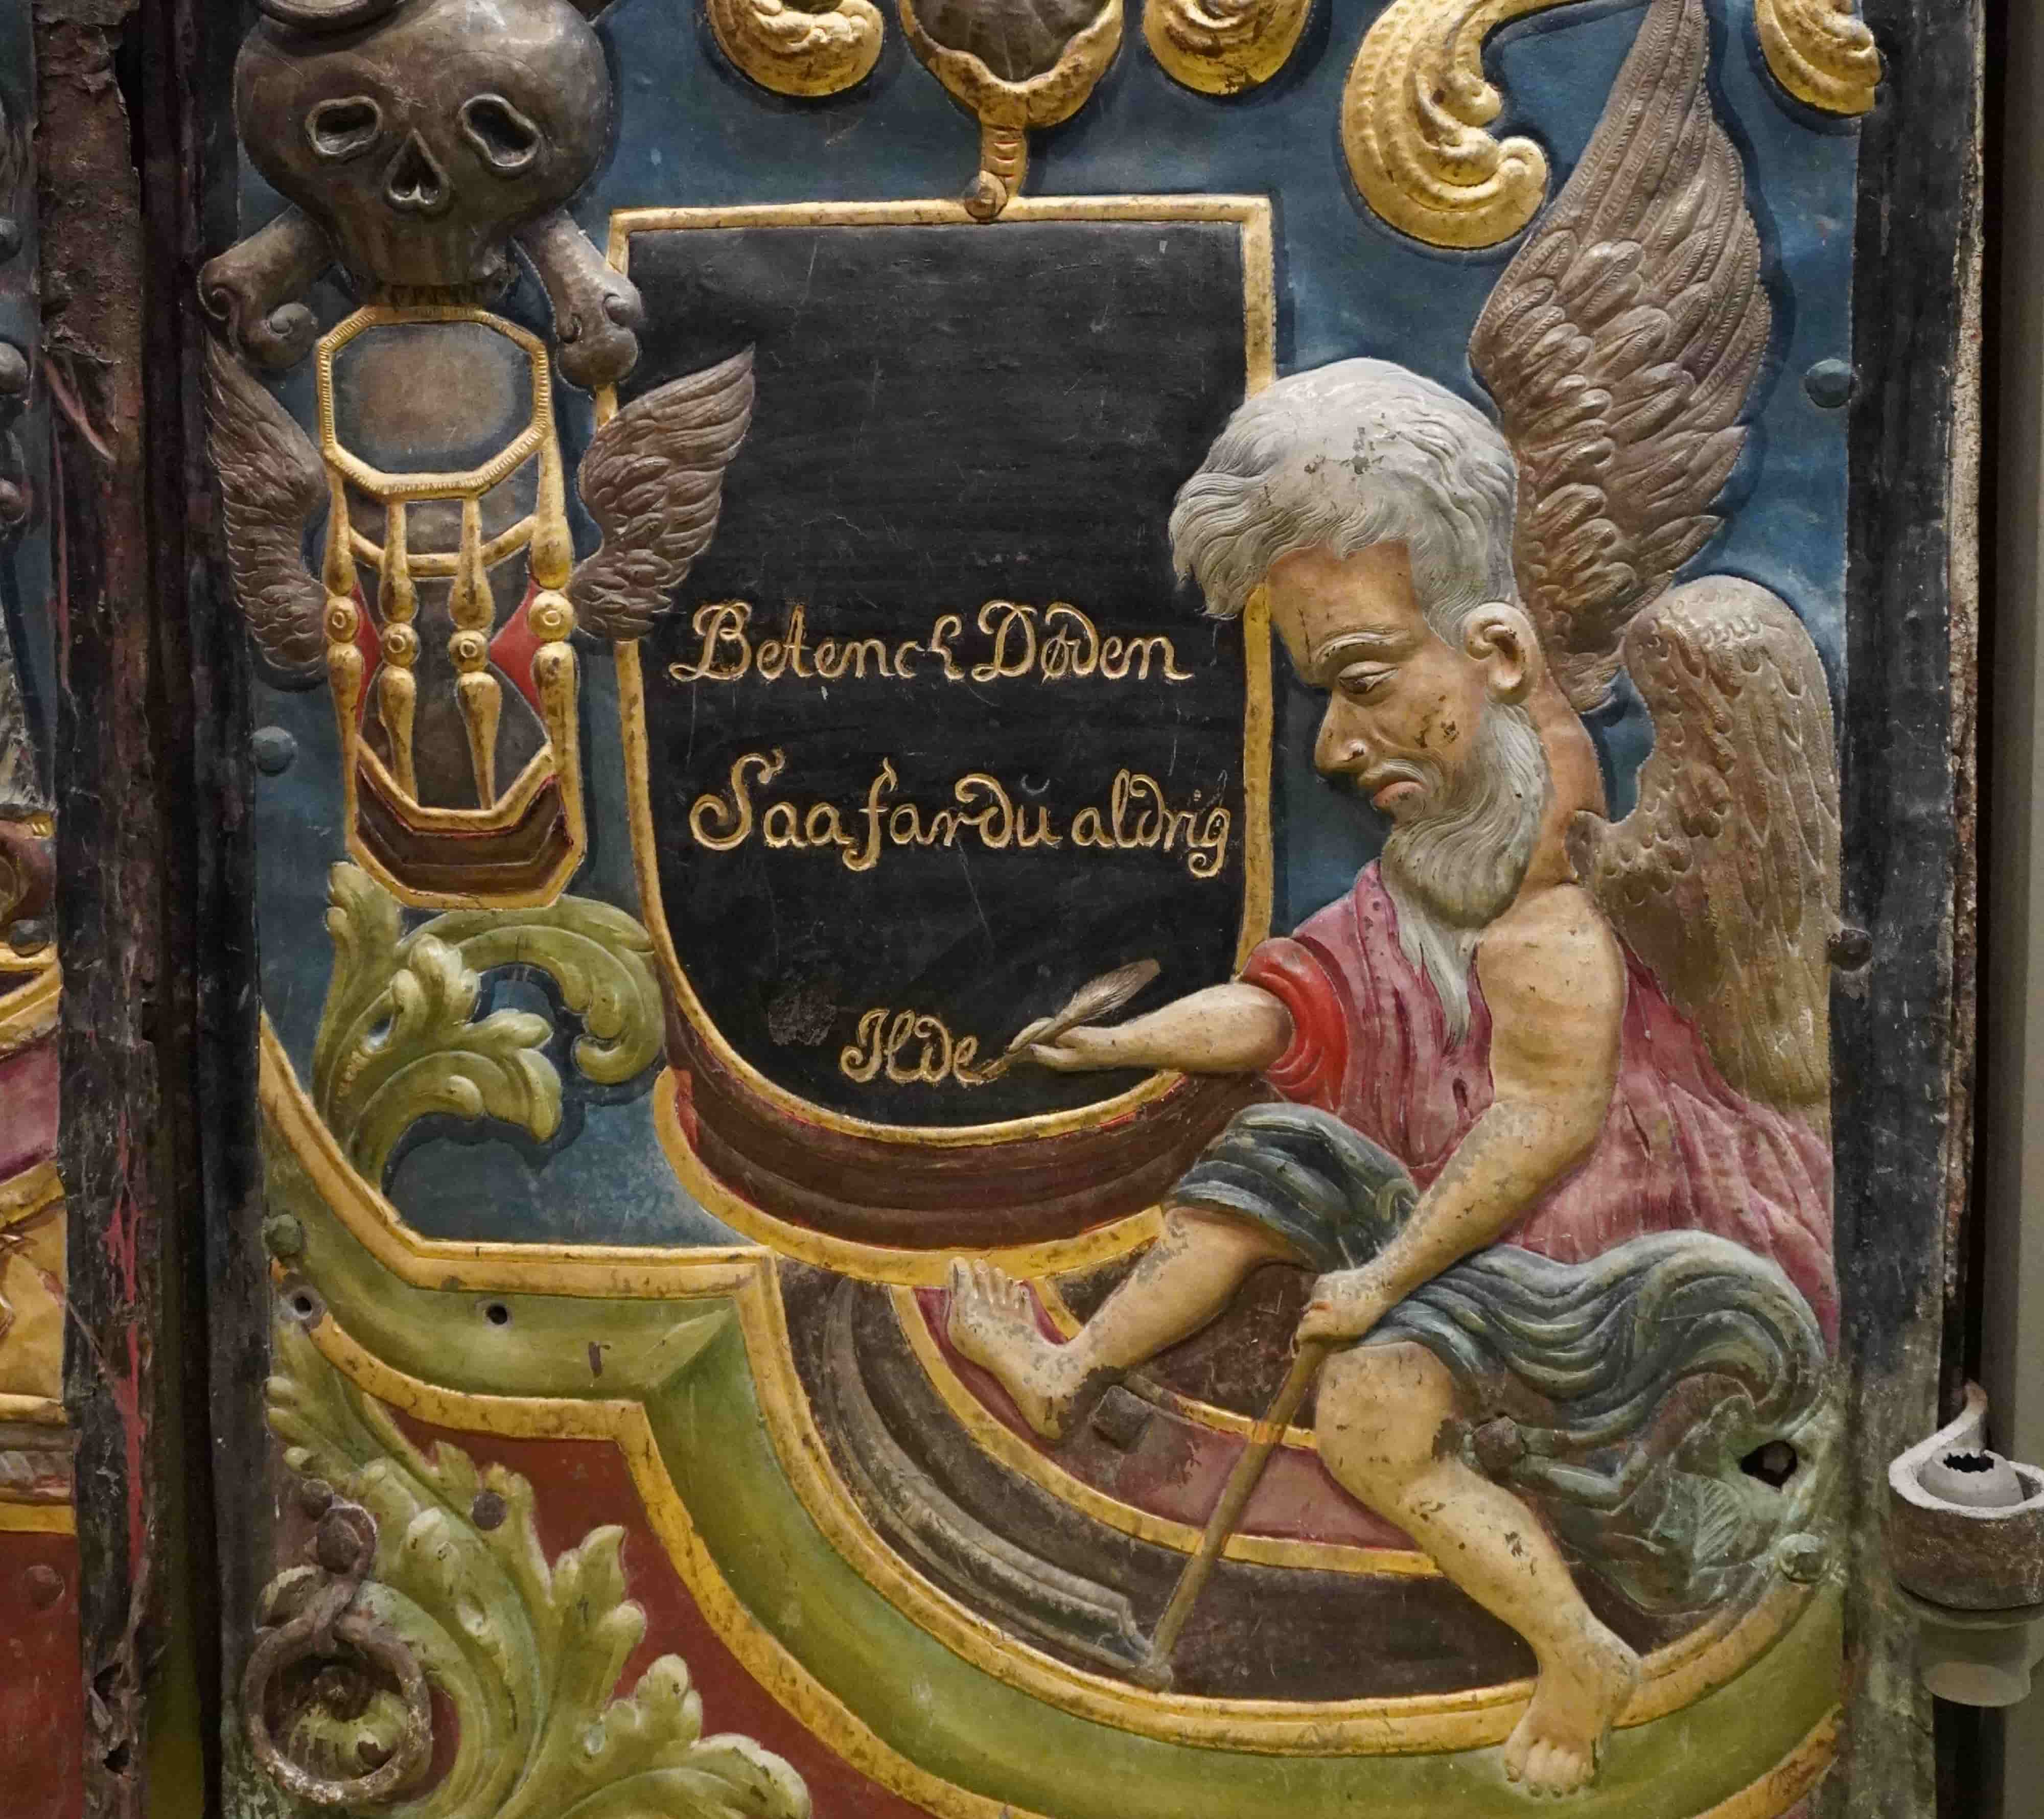 Betench Døden
Saa far du aldrig
Ilde